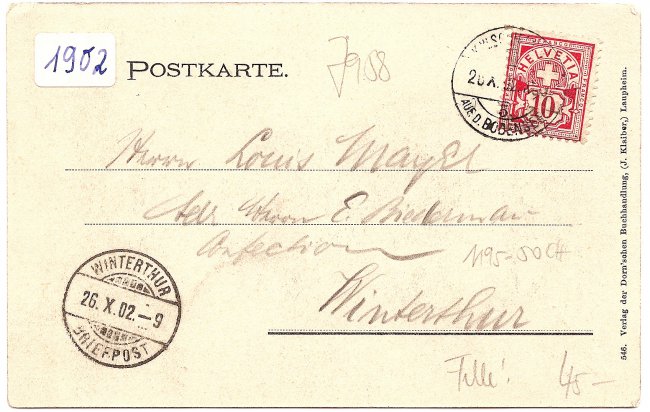 1902
POSTKARTE.
FRANCO
HELVETIA
10
26.X.
AUF. D. BODENSEE
Herrn Louis Mayel
Adr Herrn E. Biedermann
Confection
1195-50 CH
Winterthur
WINTERTHUR
26. X. 02. – 9
BRIEFPOST
45–
546. Verlag der Dorn'schen Buchhandlung, (J. Klaiber,) Laupheim.